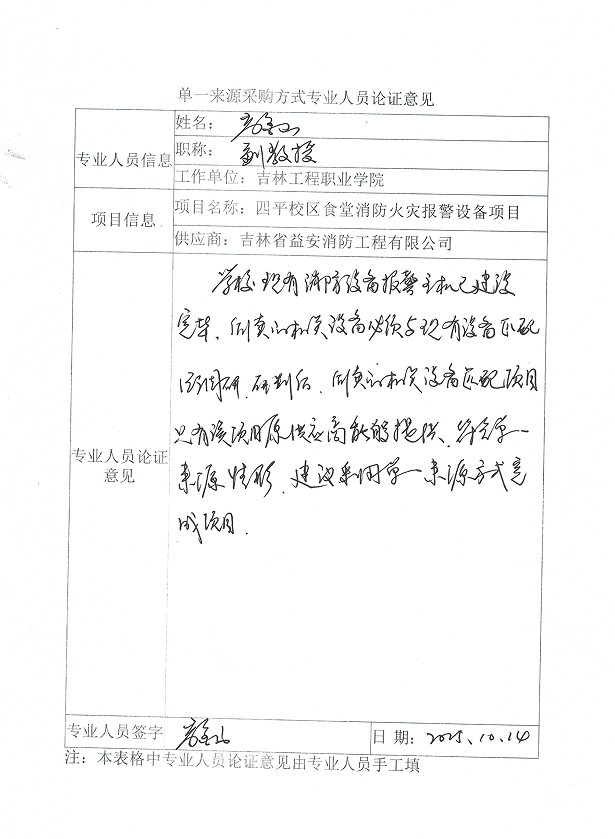 单一来源采购方式专业人员论证意见
专业人员信息
姓名：
职称： 副教授
工作单位：吉林工程职业学院
项目信息
项目名称：四平校区食堂消防火灾报警设备项目
供应商：吉林省益安消防工程有限公司
专业人员论证意见
学校现有消防设备报警主机已建设
完毕，相关设备必须与现有设备匹配
经调研、研判后，相关设备匹配项目
只有该项目原供应商能够提供、符合单一
来源情形，建议采用单一来源方式完
成项目.
专业人员签字
日 期：2025.10.14
注：本表格中专业人员论证意见由专业人员手工填